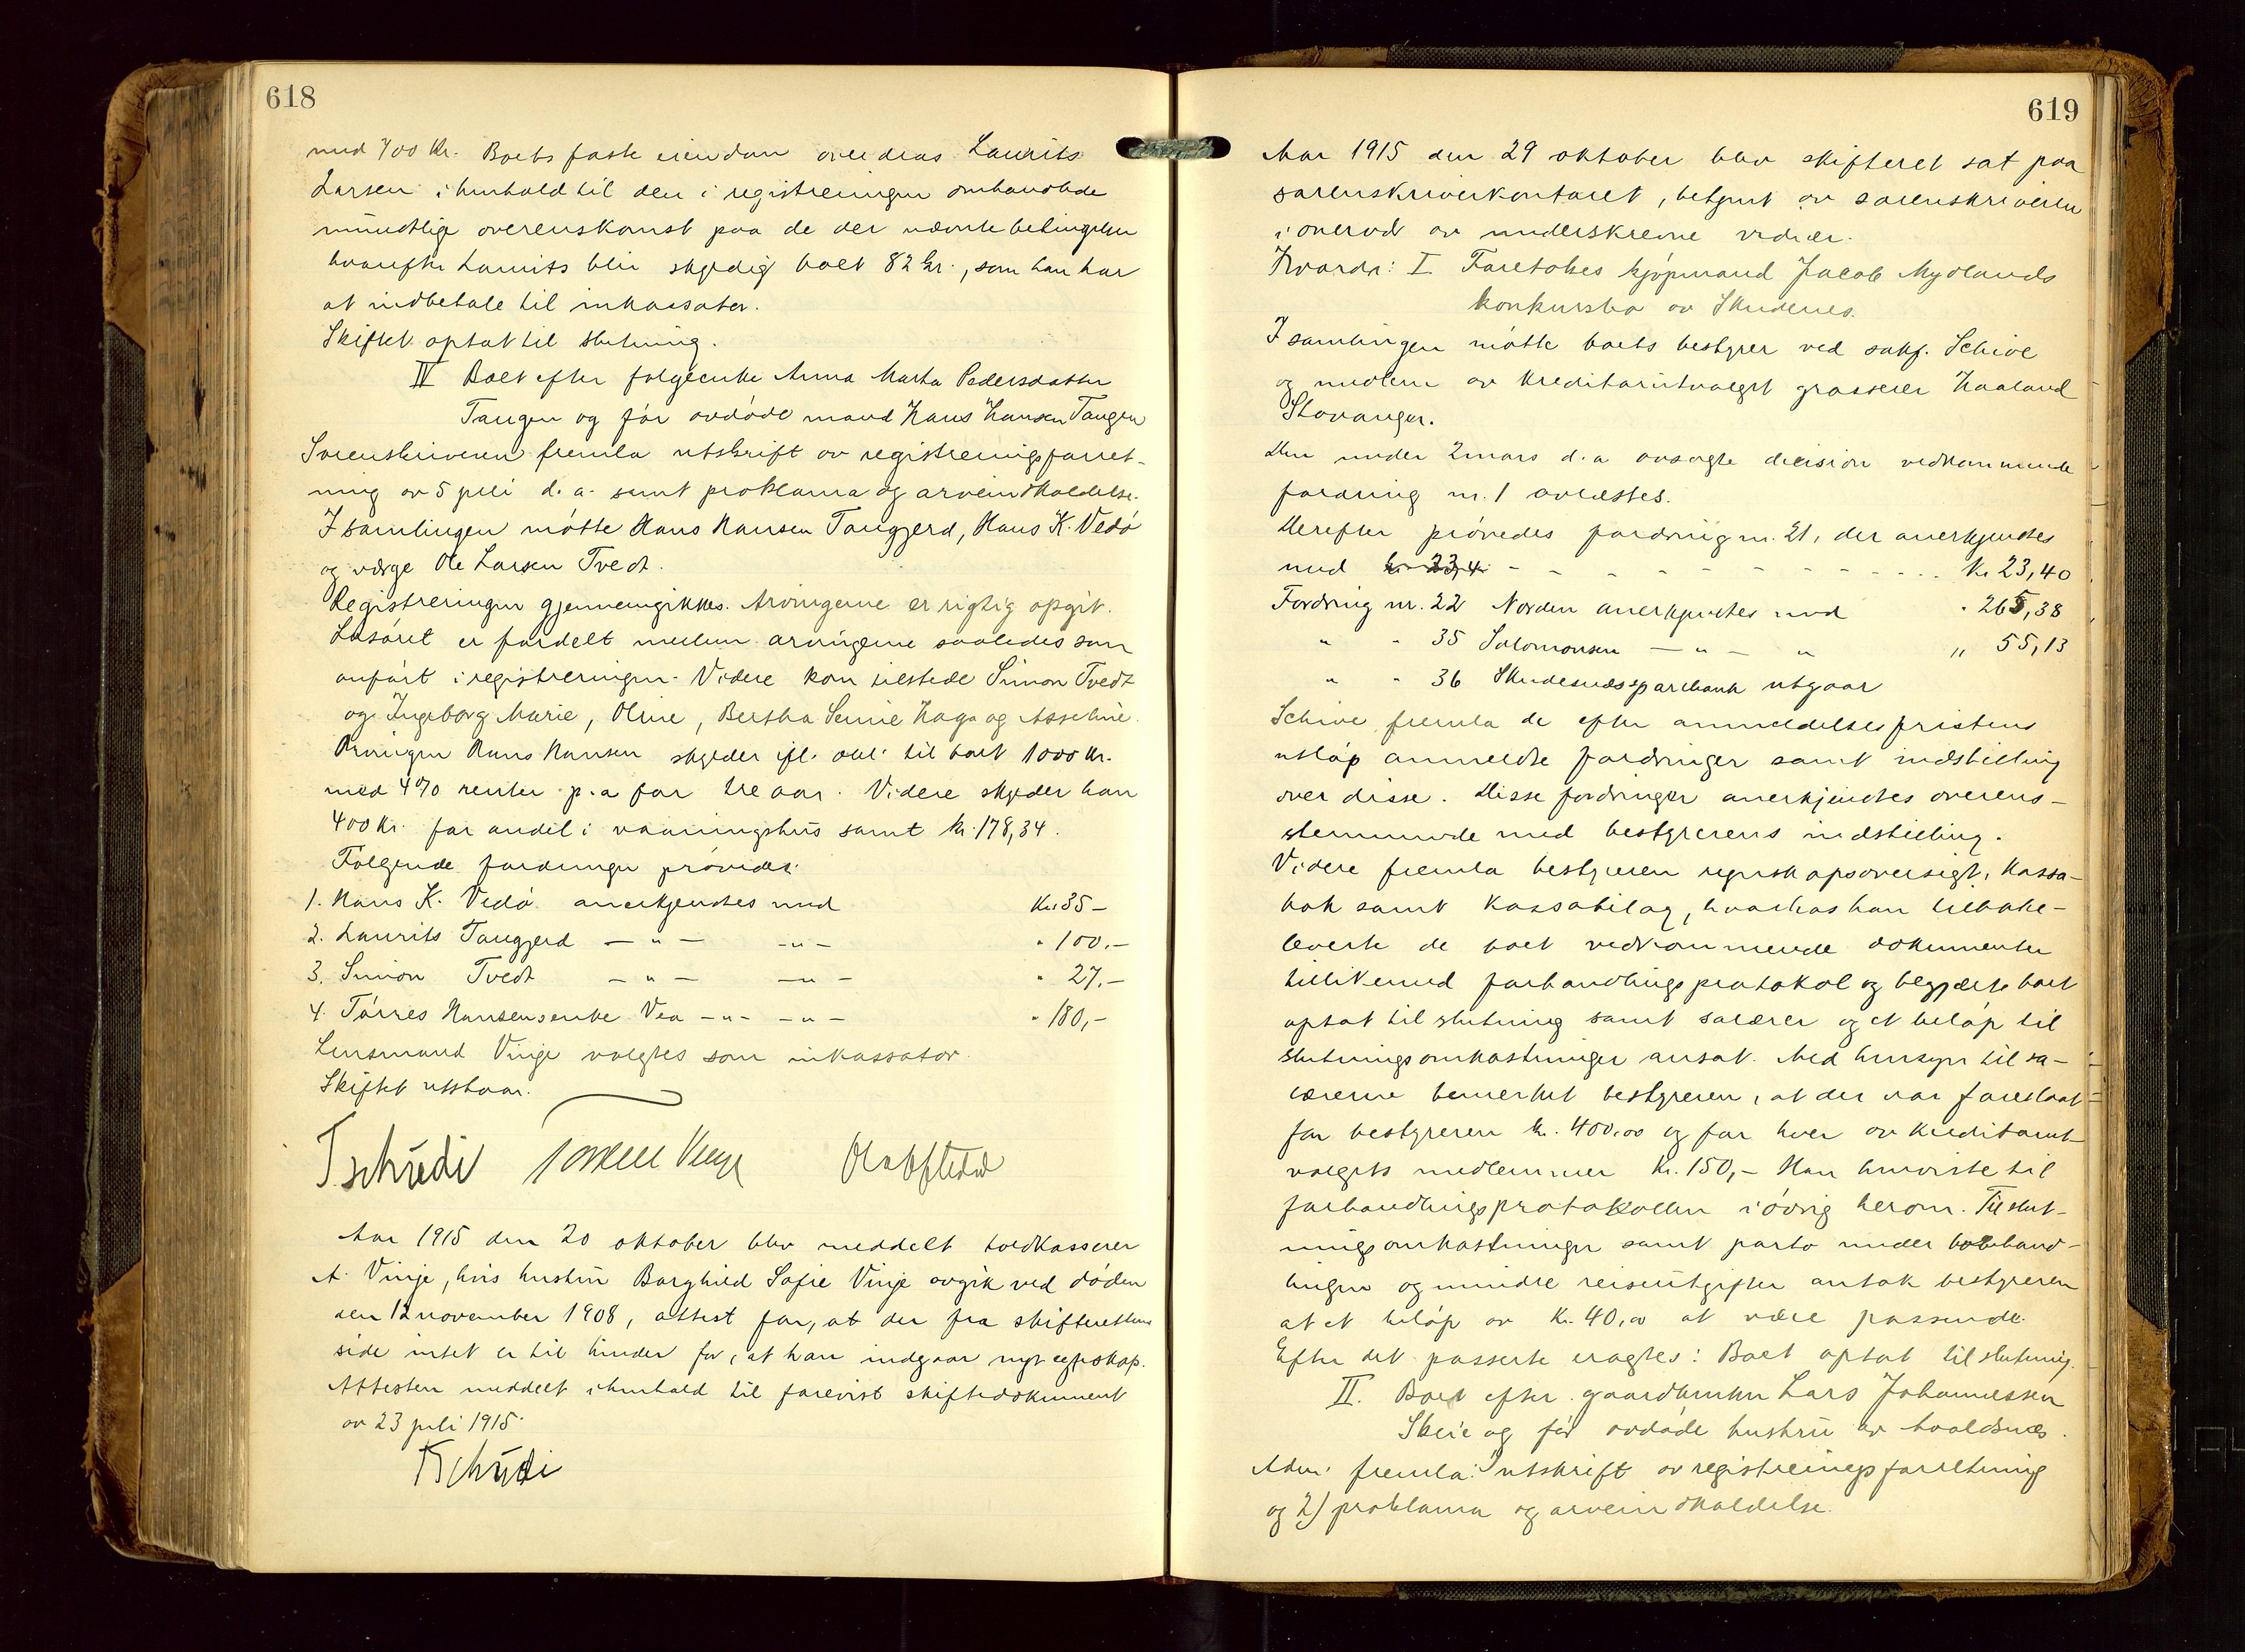 618
med 700 kr. Boets faste eiendom overdras Laurits
Larsen i henhold til den i registreringen omhandlede
mundtlige overenskomst paa de der nævnte betingelser
hvorefter Laurits blir skyldig boet 82 kr., som han har
at indbetale til inkassator.
Skiftet optat til slutning.
IV Boet efter følgeenke Anna Marta Pedersdatter
Tangen og før avdøde mand Hans Hansen Tangen
Sorenskriveren fremla utskrift av registreringsforret-
ning av 5 juli d.a. samt proklama og arveindkaldelse.
I samlingen møtte Hans Hansen Tangjerd, Hans K. Vedø
og værge Ole Larsen Tvedt.
Registreringen gjennemgikkes. Arvingerne er rigtig opgit.
Løsøret er fordelt mellem arvingerne saaledes som
anført i registreringen. Videre kom tilstede Simon Tvedt
og Ingeborg Marie, Oline, Bertha Serine Haga og Asseline.
Arvingen Hans Hansen skylder ifl. obl. til boet 1000 kr.
med 4% renter p.a for tre aar. Videre skylder han
400 kr. for andel i vaaningshus samt kr. 178,34.
Følgende fordringer prøvedes:
1. Hans K. Vedø anerkjendtes med Kr. 35 -
2. Laurits Tangjerd — " — — " — " 100.—
3. Simon Tvedt — " — — " — " 27.—
4. Tørres Hansens enke Vea — " — — " — " 180,-
Lensmand Vinje valgtes som inkassator.
Skiftet utstaar.
Tschudi Torkell Vinje
Aar 1915 den 20 oktober blev meddelt toldkasserer
A. Vinje, hvis hustru Borghild Sofie Vinje avgik ved døden
den 12 november 1908, attest for, at der fra skifterettens
side intet er til hinder for, at han indgaar nyt egteskap.
Attesten meddelt i henhold til forevist skiftedokument
av 23 juli 1915.
Tschudi
619
Aar 1915 den 29 oktober blev skifteret sat paa
sorenskriverkontoret, betjent av sorenskriveren
i overvær av underskrevne vidner.
Hvorda: I Foretokes kjøpmand Jacob Mydlands
konkursbo av Skudenes.
I samlingen møtte boets bestyrer ved sakf. Schive
og medlem av kreditorutvalget grosserer Haaland
Stavanger.
Den under 2 mars d.a avsagte decision vedkommende
fordring nr. 1 avlæstes.
Derefter prøvedes fordring nr. 21, der anerkjendtes
med kr. 23,4 - - - - - - - - - - - kr 23,40
Fordring nr. 22 Norden anerkjendtes med " 265,38
" " 35 Salomonsen — " — " " 55,13
" " 36 Skudesnæs sparebank utgaar
Schive fremla de efter anmeldelsesfristens
utløp anmeldte fordringer samt indstilling
over disse. Disse fordringer anerkjendtes overens-
stemmende med bestyrerens indstilling.
Videre fremla bestyreren regnskapsoversigt, kassa-
bok samt kassabilag, hvorhos han tilbake-
leverte de boet vedkommende dokumenter
tillikemed forhandlingsprotokol og begjærte boet
optat til slutning samt salærer og et beløp til
slutningsomkostninger ansat. Med hensyn til sa-
lærerne bemerket bestyreren, at der var foreslaat
for bestyreren kr. 400,00 og for hver av kreditorut-
valgets medlemmer kr. 150,- Han henviste til
forhandlingsprotokollen i øvrig herom. Til slut-
ningsomkostninger samt porto under bobehand-
lingen og mindre reiseutgifter antok bestyreren
at et beløp av kr. 40,00 at være passende.
Efter det passerte eragtes: Boet optat til slutning.
II. Boet efter gaardbruker Lars Johannessen
Skeie og før avdøde hustru av Avaldsnes.
Adm. fremla: 1) utskrift av registreringsforretning
og 2) proklama og arveindkaldelse.